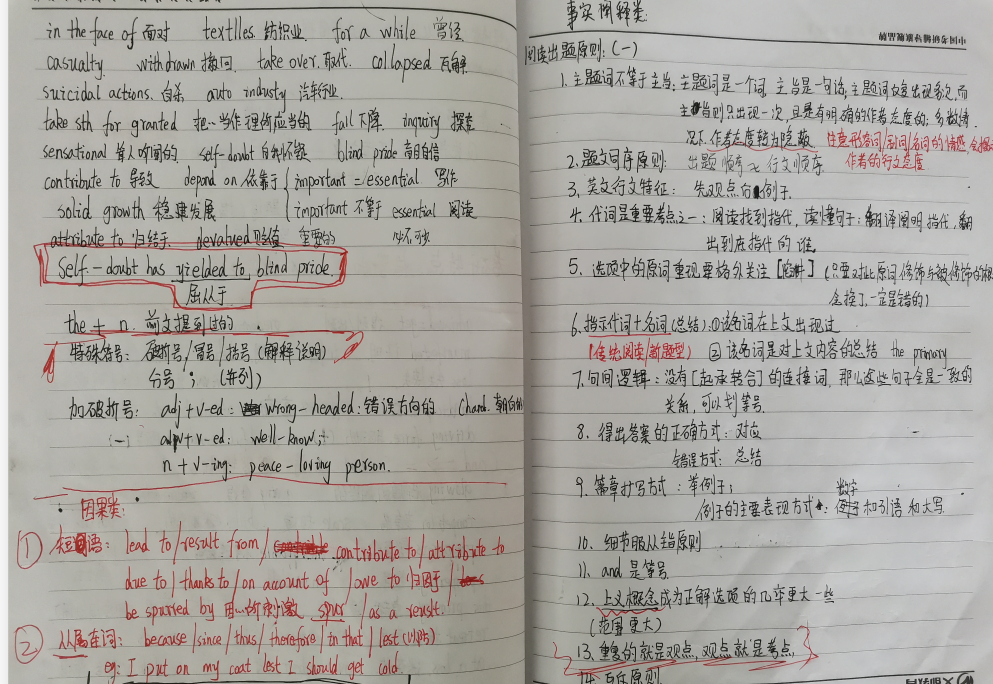 in the face of 面对 textlles 纺织业 for a while 曾经
casualty withdrawn 撤回 take over 取代 collapsed 瓦解
suicidal actions. 自杀 auto industy 汽车行业
take sth for granted 把…当作理所应当的 fall 下降 inquiry 探索
sensational 耸人听闻的 self-doubt 自我怀疑 blind pride 盲目自信
contribute to 导致 depend on 依靠于 important = essential 写作
solid growth 稳健发展 important 不等于 essential 阅读
attribute to 归结于 devalued 贬值 重要的 必不可少
Self-doubt has yielded to blind pride.
屈从于
the + n. 前文提到过的
特殊符号: 破折号/冒号/括号 (解释说明)
分号 ; (并列)
加破折号: adj + v-ed: wrong-headed: 错误方向的
(一) adv + v-ed: well-know;
n + v-ing: peace-loving person.
因果类:
① 短语: lead to/result from/ contribute to/attribute to
due to/thanks to/on account of/owe to 归因于/
be spurred by 用…所刺激 spur/as a result.
② 从属连词: because/since/thus/therefore/in that/lest (以防)
eg: I put on my coat lest I should get cold.
事实阐释类
中国考研辅导旗舰品牌
阅读出题原则: (一)
1. 主题词不等于主旨; 主题词是一个词, 主旨是一句话; 主题词反复出现多次, 而
主旨则只出现一次, 且是有明确的作者态度的, 多数情
况下, 作者态度较为隐蔽 注意形容词/副词/名词的情感, 会揭示
作者的行文态度
2. 题文同序原则: 出题顺序 ≈ 行文顺序
3. 英文行文特征: 先观点后例子.
4. 代词是重要考点之一: 阅读找到指代, 读懂句子; 翻译阐明指代, 翻
出到底指代的谁
5. 选项中的原词重现要格外关注 [陷阱] (只要对比原词修饰与被修饰的
会换了, 一定是错的)
6. 指示代词+名词 (总结): ①该名词在上文出现过
(传统阅读/新题型) ②该名词是对上文内容的总结 the primary
7. 句间逻辑: 没有 [起承转合] 的连接词, 那么这些句子全是一致的
关系, 可以划等号
8. 得出答案的正确方式: 对应
错误方式: 总结
9. 篇章抒写方式: 举例子;
数字
例子的主要表现方式: 和引语和大写
10. 细节服从主旨原则
11. and 是等号
12. 上义概念成为正解选项的几率更大一些
(范围更大)
13. 重复的就是观点, 观点就是考点
14. 原则